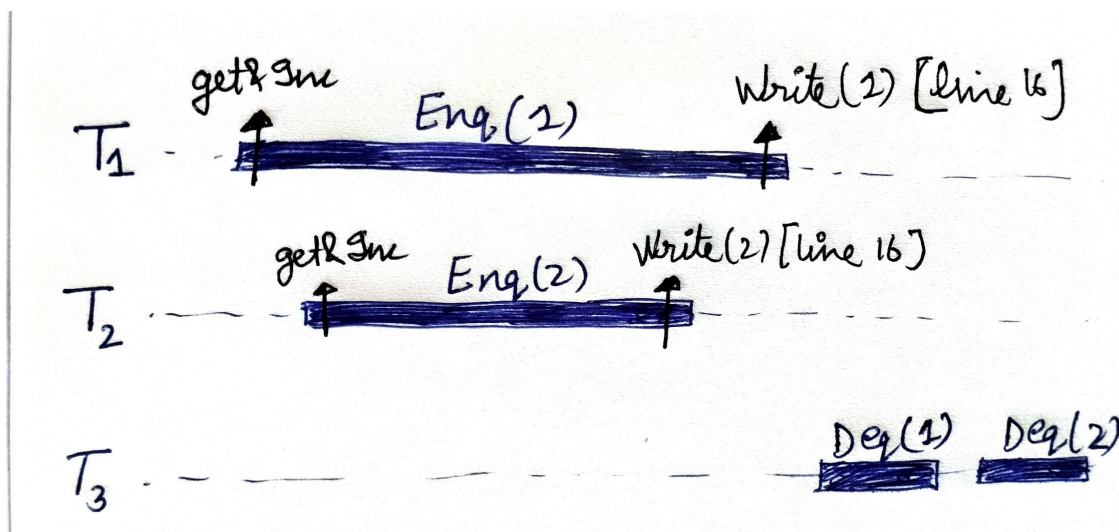 get&Inc
Enq(1)
Write(1) [line 16]
T1
get&Inc
Enq(2)
Write(2) [line 16]
T2
Deq(1) Deq(2)
T3